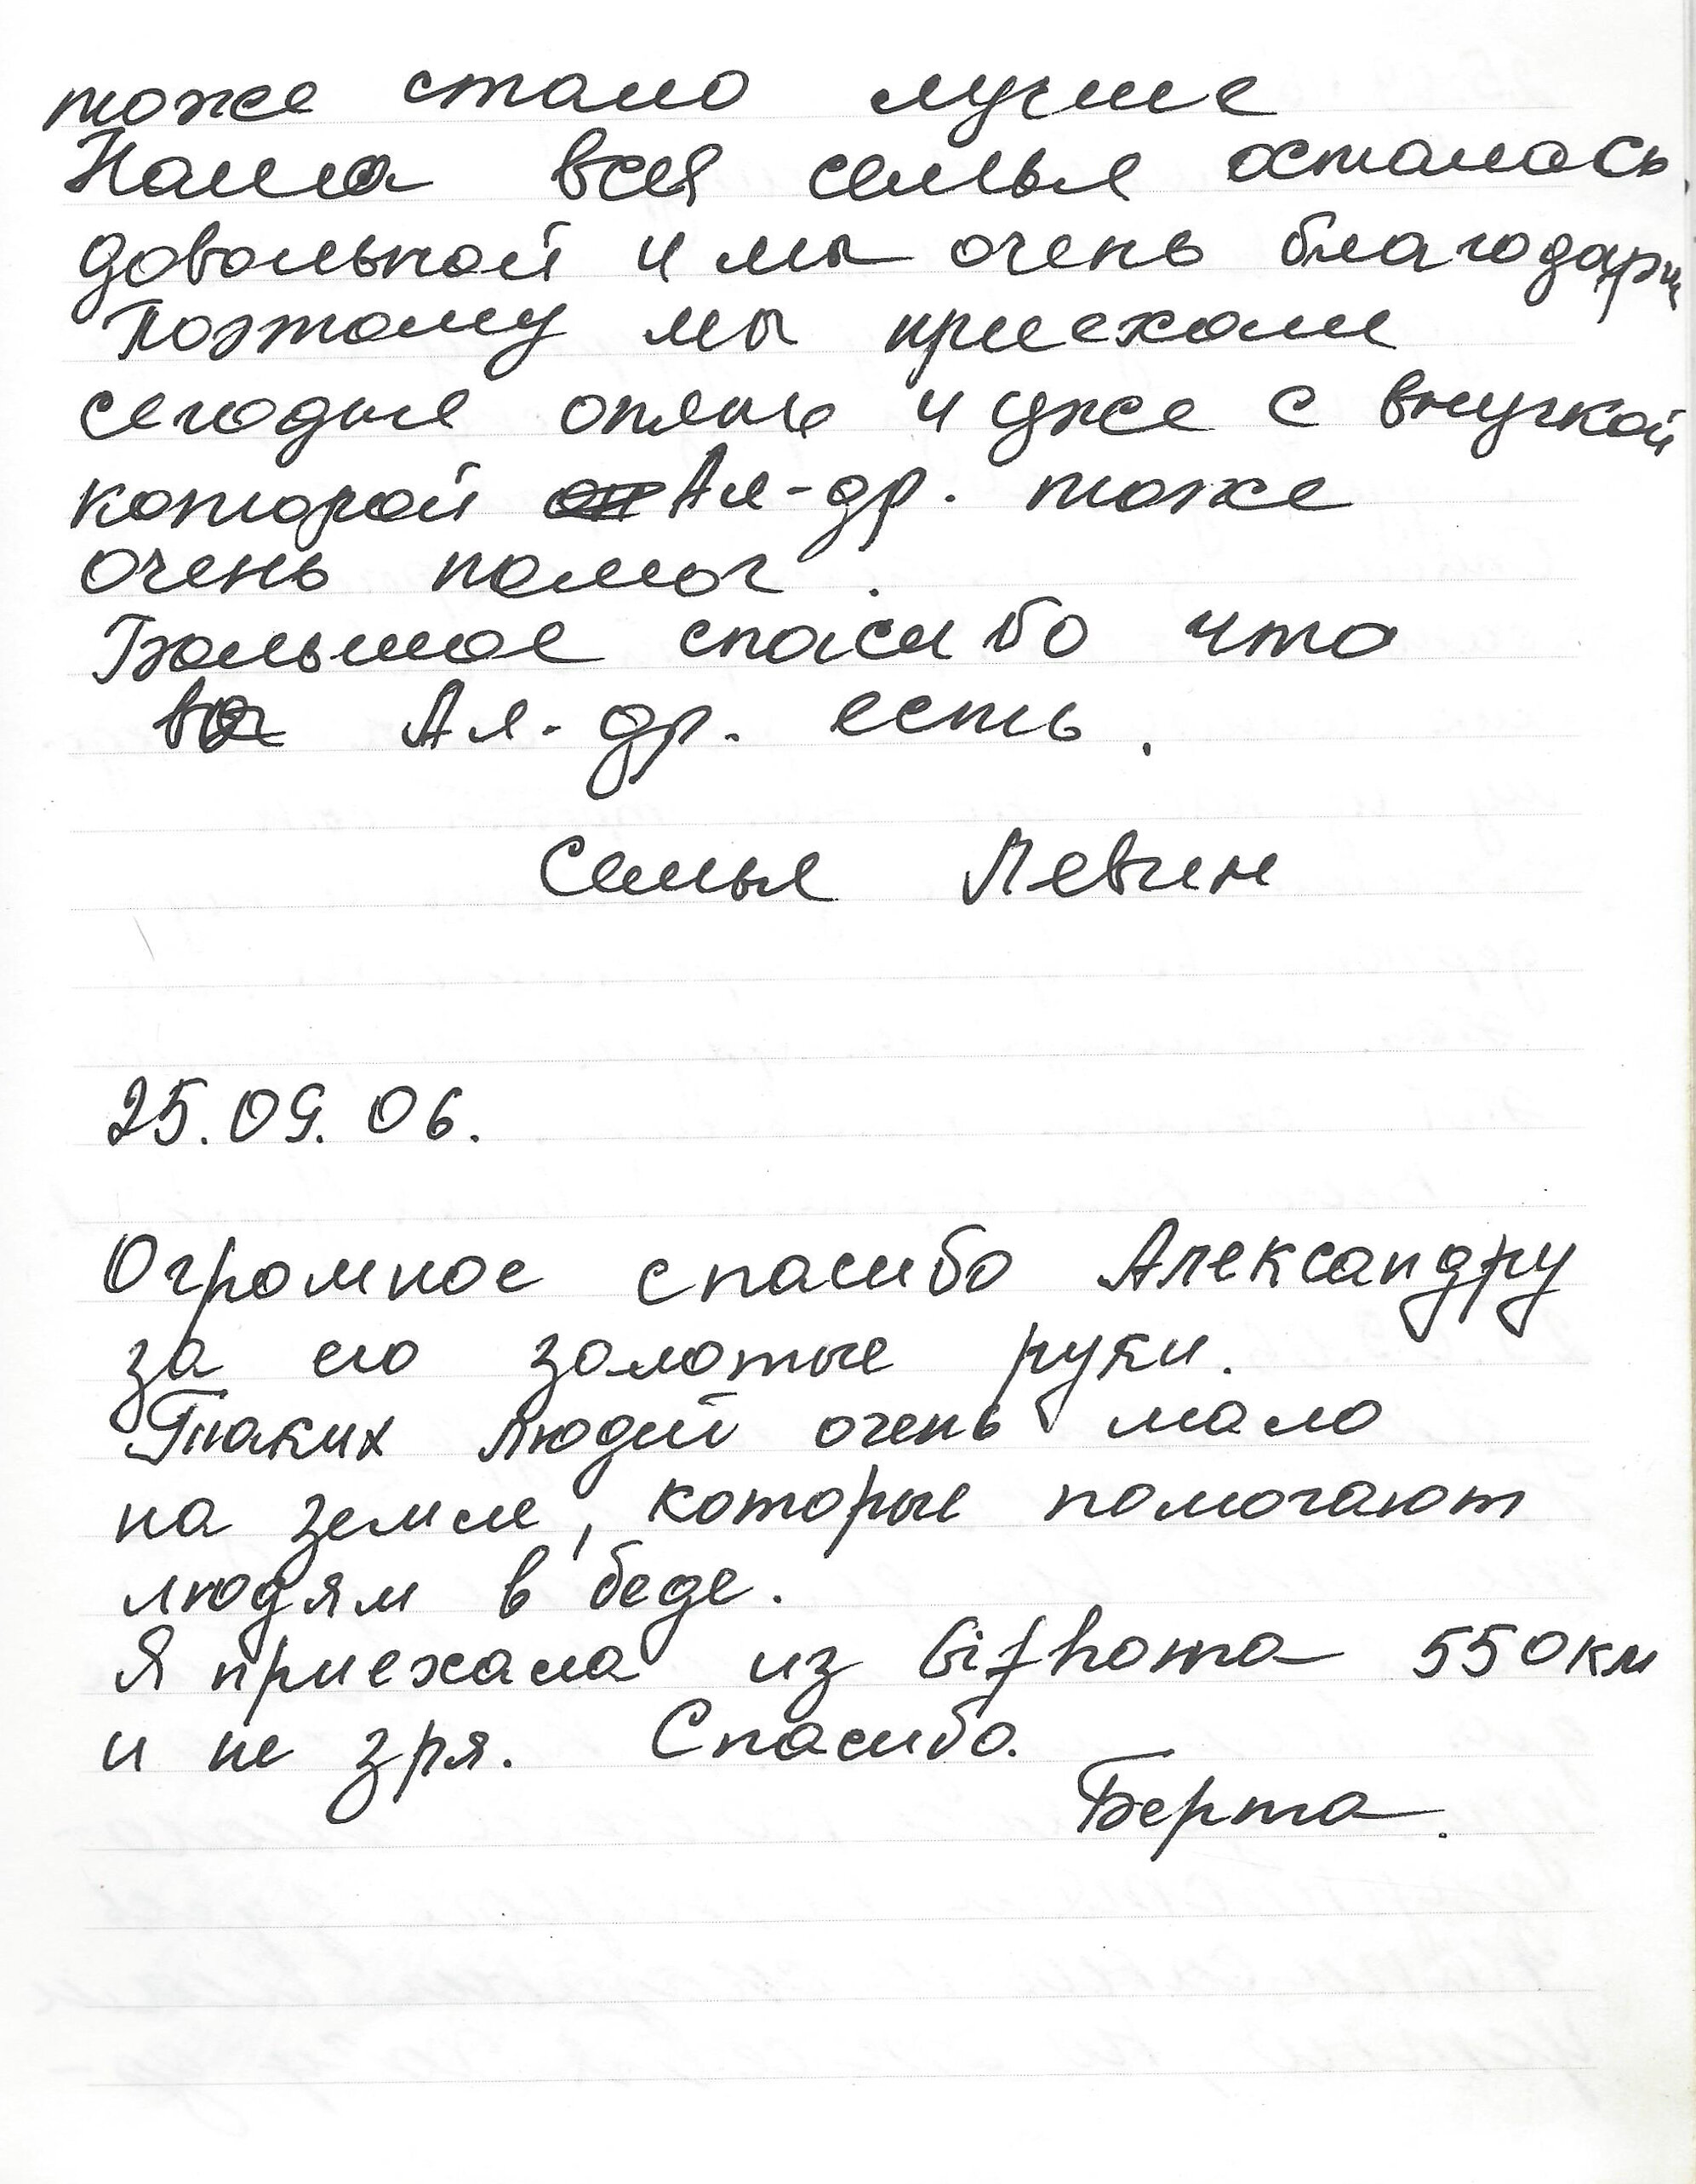 тоже стало лучше
Наша вся семья осталась
довольной и мы очень благодарн
Поэтому мы приехали
сегодня опять и уже с внучкой
которой Ал-др. тоже
очень помог.
Большое спасибо что
Ал-др. есть.
Семья Левин
25.09.06.
Огромное спасибо Александру
за его золотые руки.
Таких людей очень мало
на земле, которые помогают
людям в беде.
Я приехала из Gifhorna 550км
и не зря. Спасибо.
Берта.